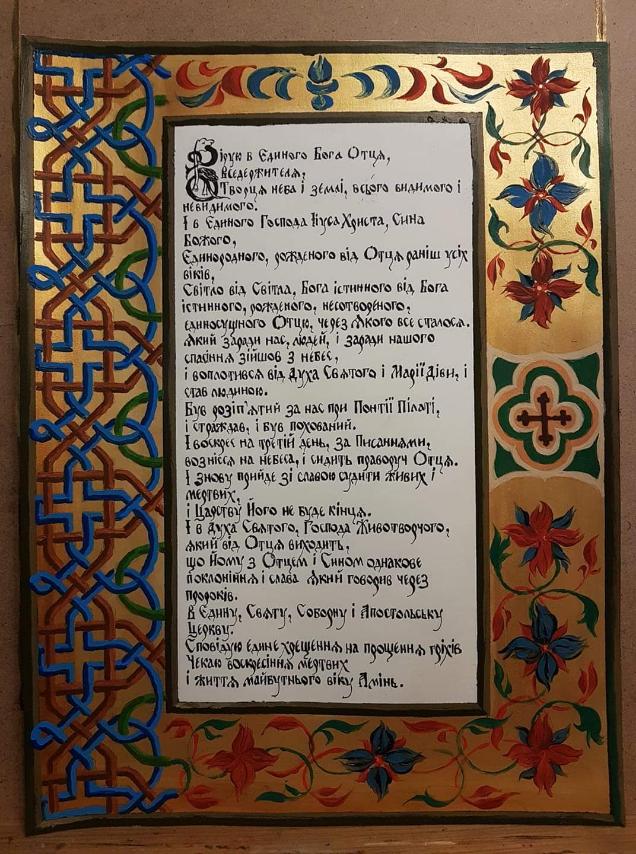 Вірую в Єдиного Бога Отця,
Вседержителя,
Творця неба і землі, всього видимого і
невидимого.
І в Єдиного Господа Ісуса Христа, Сина
Божого,
Єдинородного, рожденого від Отця раніш усіх
віків,
Світло від Світла, Бога істинного від Бога
істинного, рожденого, несотвореного,
єдиносущного Отцю, через Якого все сталося.
Який заради нас, людей, і заради нашого
спасіння зійшов з небес,
і воплотився від Духа Святого і Марії Діви, і
став людиною.
Був розіп'ятий за нас при Понтії Пілаті,
і страждав, і був похований.
І воскрес на третій день, за Писаннями,
вознісся на небеса, і сидить праворуч Отця.
І знову прийде зі славою судити живих і
мертвих,
і Царству Його не буде кінця.
І в Духа Святого, Господа Животворчого,
який від Отця виходить,
що Йому з Отцем і Сином однакове
поклоніння і слава Який говорив через
пророків.
В Єдину, Святу, Соборну і Апостольську
Церкву.
Сповідую єдине хрещення на прощення гріхів
Чекаю воскресіння мертвих
і життя майбутнього віку Амінь.